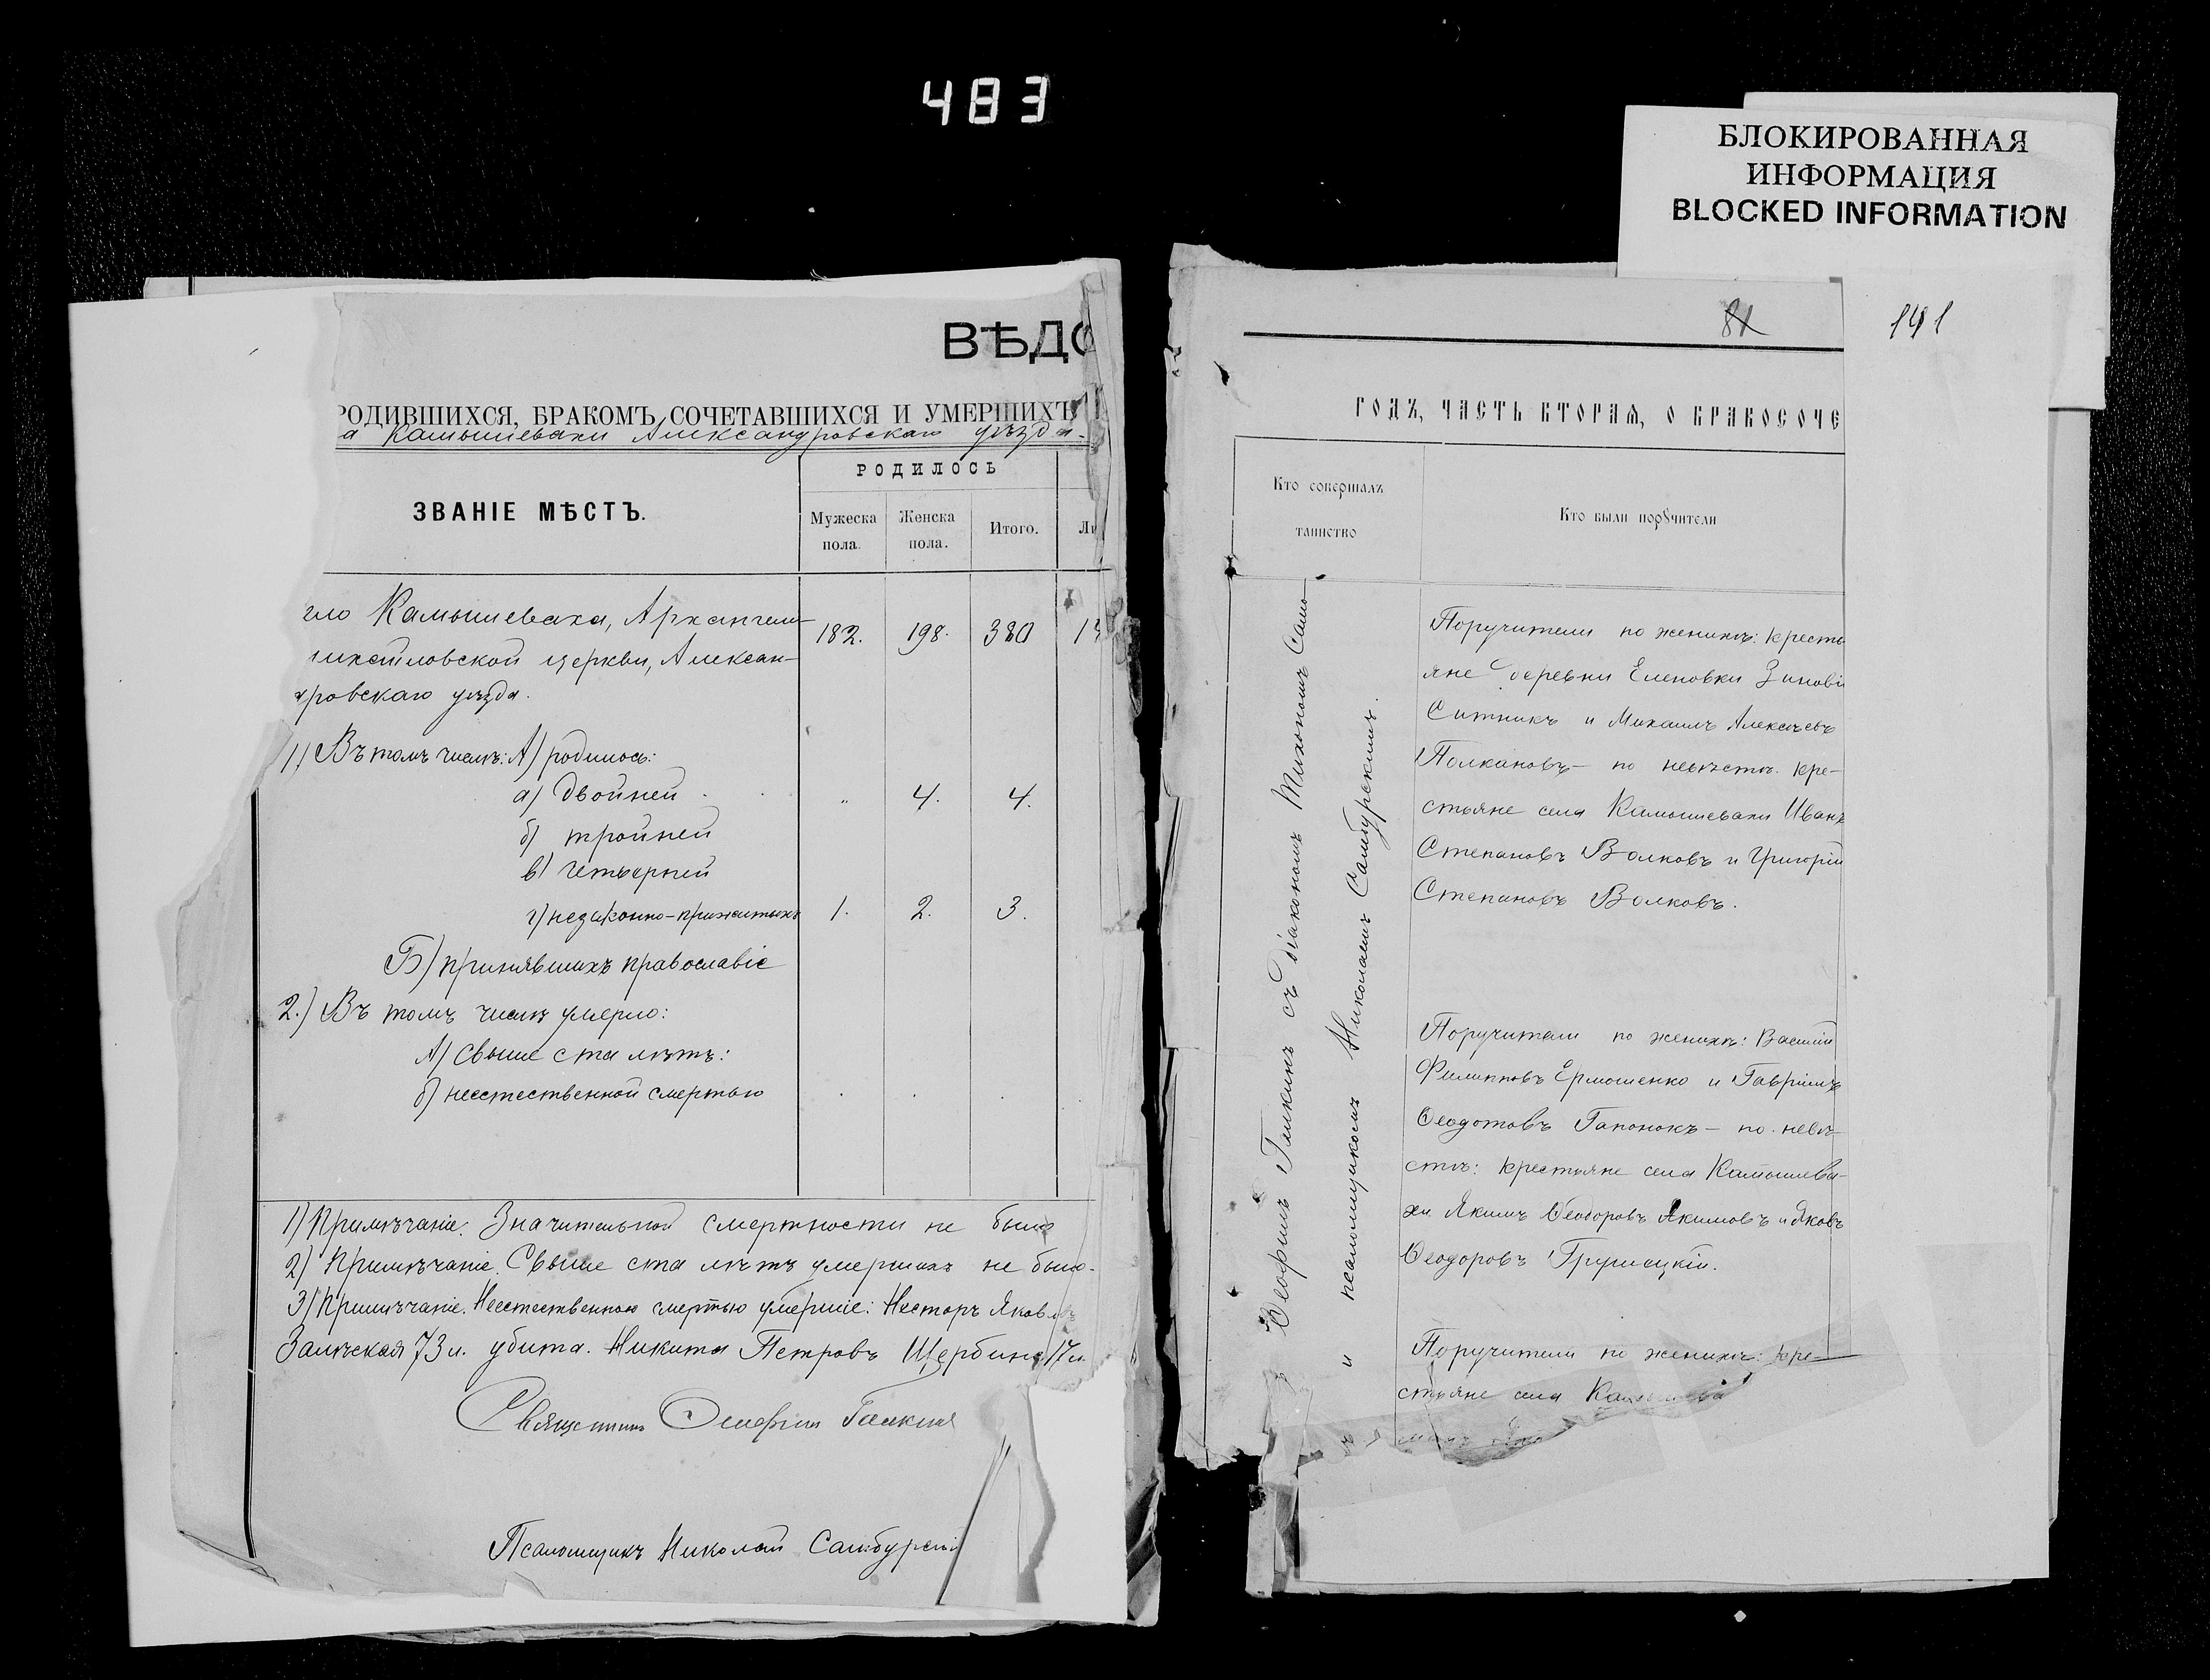 483
БЛОКИРОВАННАЯ
ИНФОРМАЦИЯ
BLOCKED INFORMATION
ВѢДО
РОДИВШИХСЯ, БРАКОМЪ СОЧЕТАВШИХСЯ И УМЕРШИХЪ
а Камышевахи Александровскаго уѣзда.
ЗВАНІЕ МѢСТЪ.
РОДИЛОСЬ
Мужеска пола.
Женска пола.
Итого.
Ли
ело Камышеваха, Архангело- 182. 198. 380 13
ихайловской церкви, Алексан-
дровскаго уѣзда.
1) Въ томъ числѣ: А) родилось:
а) двойней „ 4. 4.
б) тройней
в) четверней
г) незаконно-прижитыхъ 1. 2. 3.
Б) принявшихъ православіе
2.) Въ томъ числѣ умерло:
А) свыше ста лѣтъ:
б) неестественной смертью
1) Примѣчаніе. Значительной смертности не было
2) Примѣчаніе. Свыше ста лѣтъ умершихъ не было.
3) Примѣчаніе. Неестественною смертью умершіе: Несторъ Яковл
73 л. убита. Никита Петровъ Щербина 17 л.
Священникъ Галкинъ
Псаломщикъ Николай Самбурскій
81
141
ГОДЪ, ЧАСТЬ ВТОРАЯ, О БРАКОСОЧЕ
Кто совершалъ
таинство
Кто были поручители
Ѳеофилъ Галкинъ съ діакономъ Тихономъ Само
и псаломщикомъ Николаемъ Самбурскимъ.
Поручители по женихѣ: кресть
яне деревни Еленовки Зиновій
Ситникъ и Михаилъ Алексѣевъ
Полкановъ — по невѣстѣ: кре-
стьяне села Камышевахи Иванъ
Степановъ Волковъ и Григорій
Степановъ Волковъ.
Поручители по женихѣ: Василій
Филипповъ Ермошенко и Гавріилъ
Ѳеодотовъ Гапонокъ — по невѣ-
стѣ: крестьяне села Камышева-
хи Якимъ Ѳеодоровъ Акимовъ и Яковъ
Ѳеодоровъ
Поручители по женихѣ: кре-
стьяне села Камышева